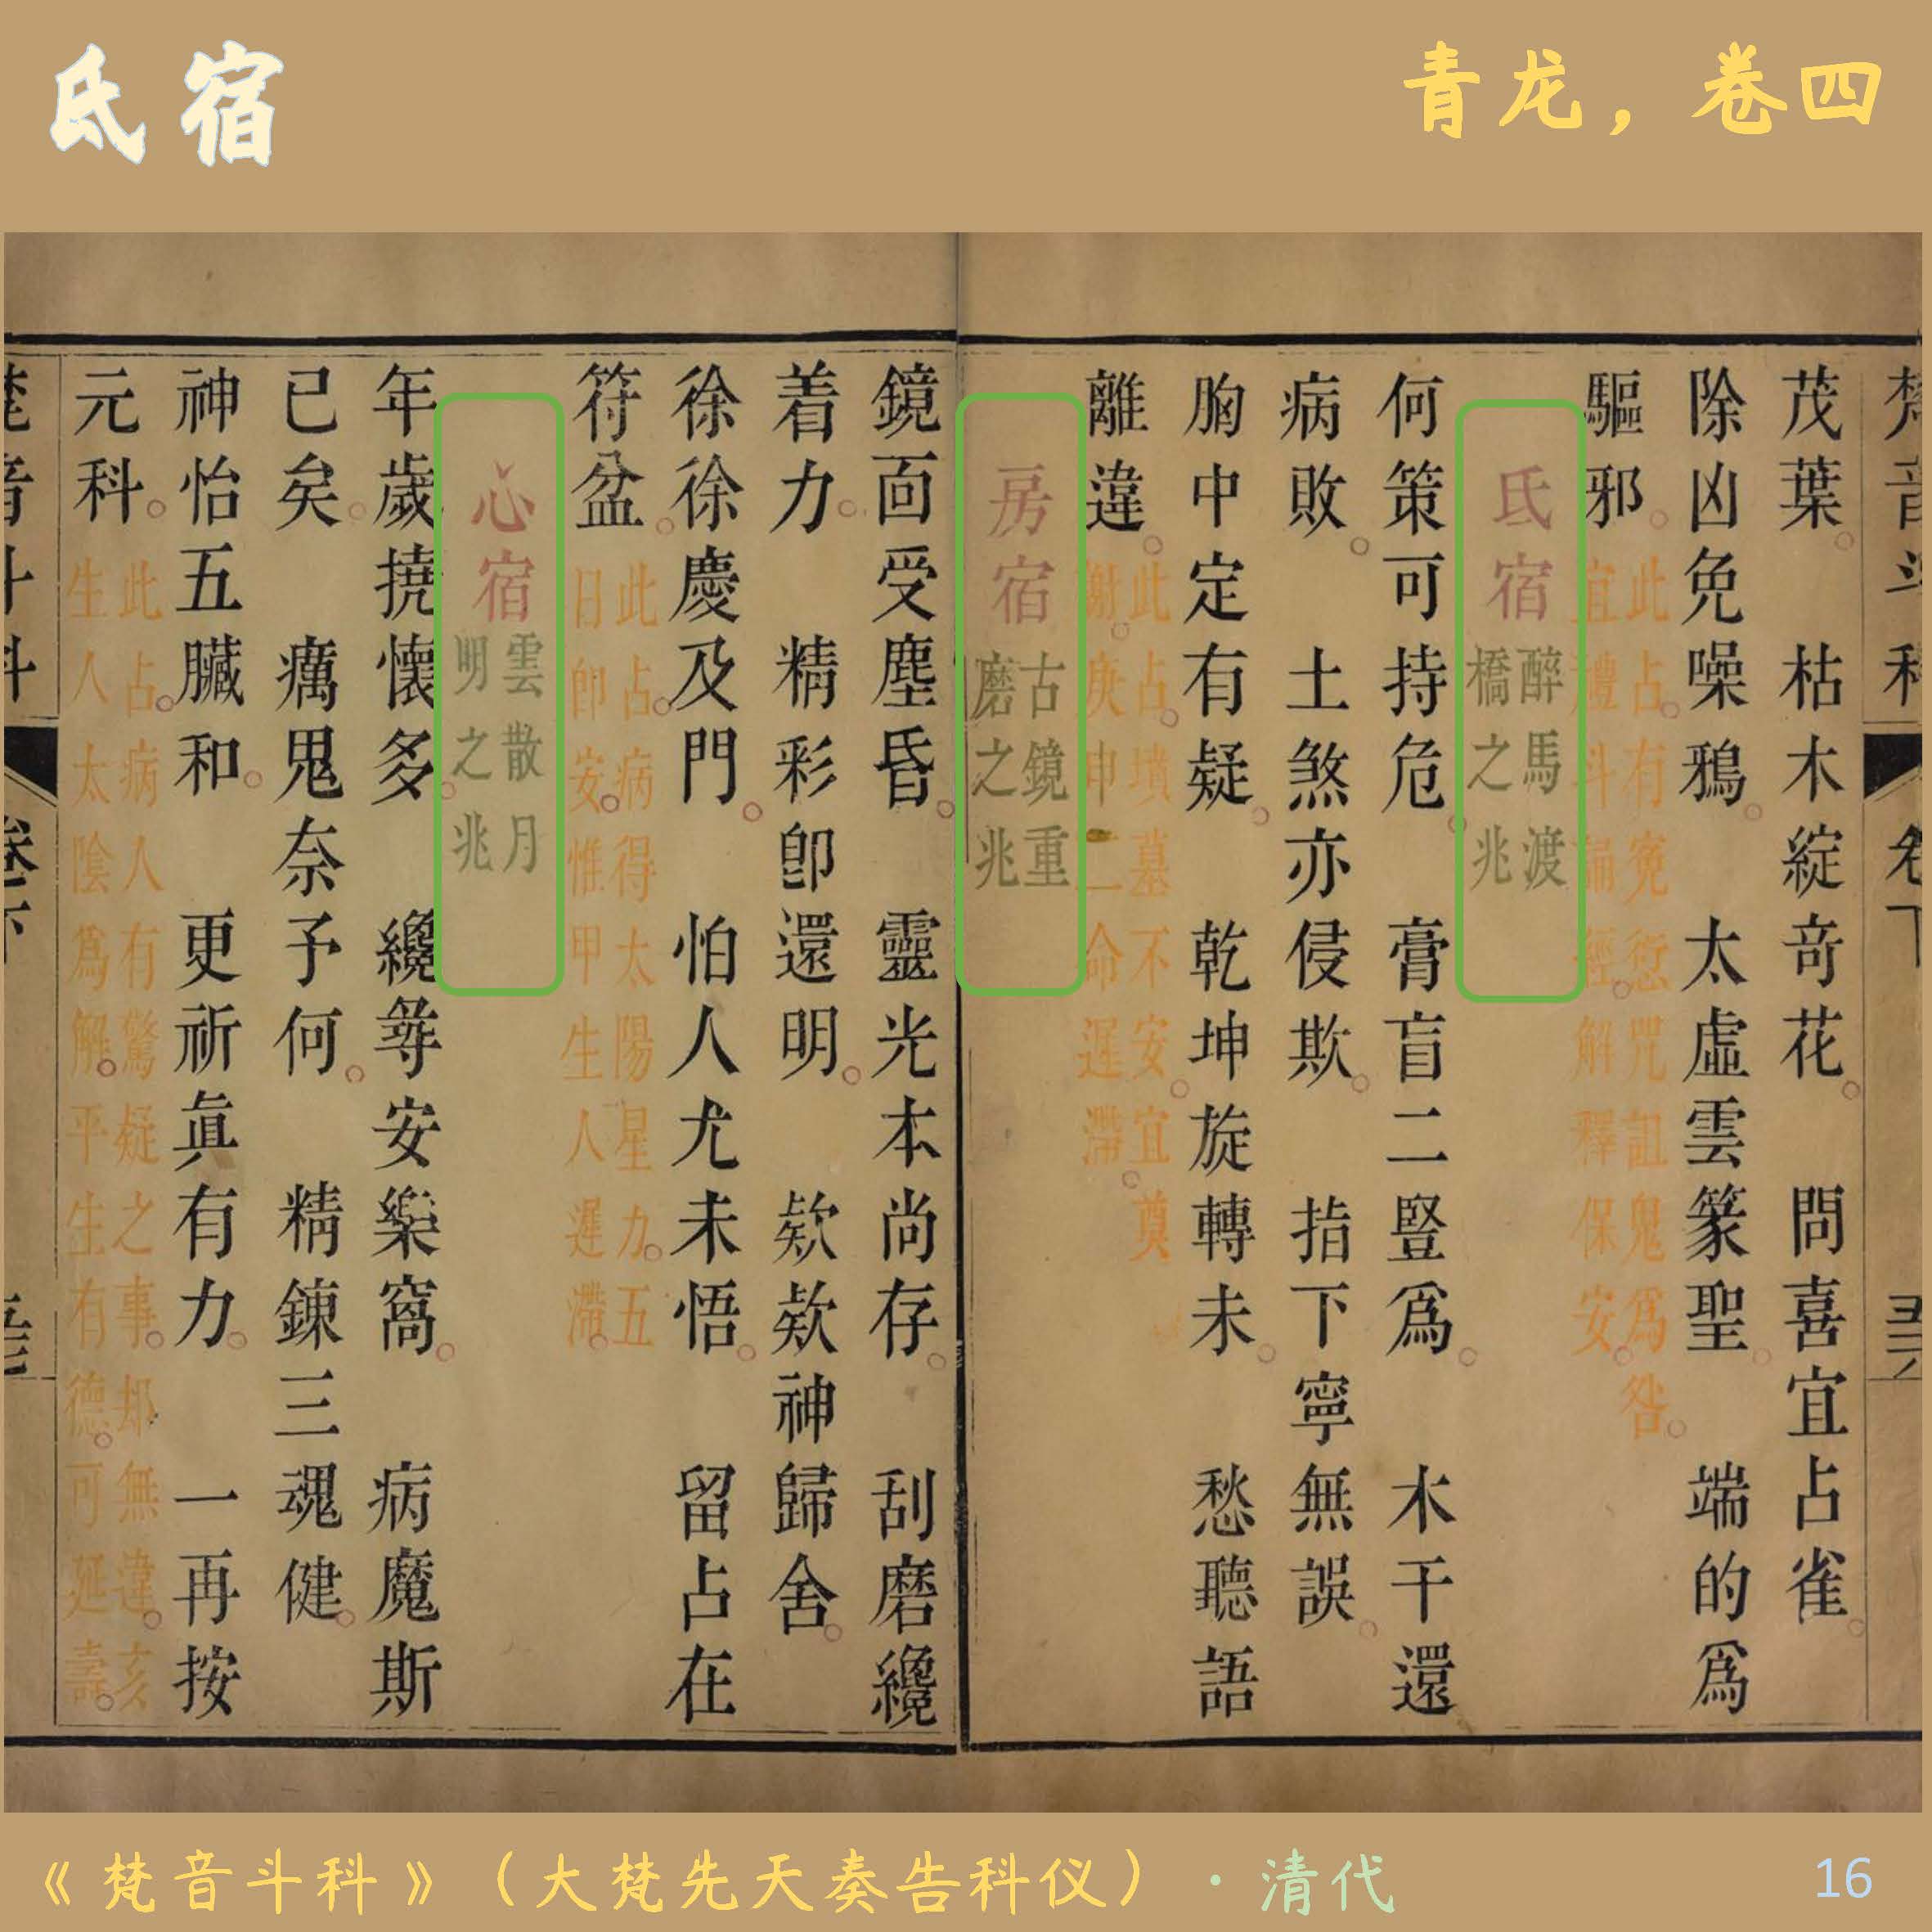 氐宿
青龙，卷四
梵音斗科
茂葉。枯木綻竒花。問喜宜占雀。
除凶免噪鴉。太虛雲篆聖。端的爲
驅邪。
此占。有寃愆咒詛鬼爲咎。
宜禮斗誦經。解釋保安。
氐宿
醉馬渡
橋之兆
何策可持危。膏盲二豎爲。木干還
病敗。土煞亦侵欺。指下寧無誤。
胸中定有疑。乾坤旋轉未。愁聽語
離違。
此占。墳墓不安。宜奠
謝。庚申二命遲滯。
房宿
古鏡重
磨之兆
鏡面受塵昏。靈光本尚存。刮磨纔
着力。精彩卽還明。欻欻神歸舍。
徐徐慶及門。怕人尤未悟。留占在
符盆。
此占。病得太陽星力。五
日卽安。惟甲生人遲滯。
心宿
雲散月
明之兆
年歲撓懷多。纔尋安樂窩。病魔斯
已矣。癘鬼奈予何。精鍊三魂健。
神怡五臟和。更祈眞有力。一再按
元科。
此占。病人有驚疑之事。却無違。亥
生人太陰爲解。平生有德。可延壽。
梵音斗科 卷下
《梵音斗科》（大梵先天奏告科仪）·清代
16